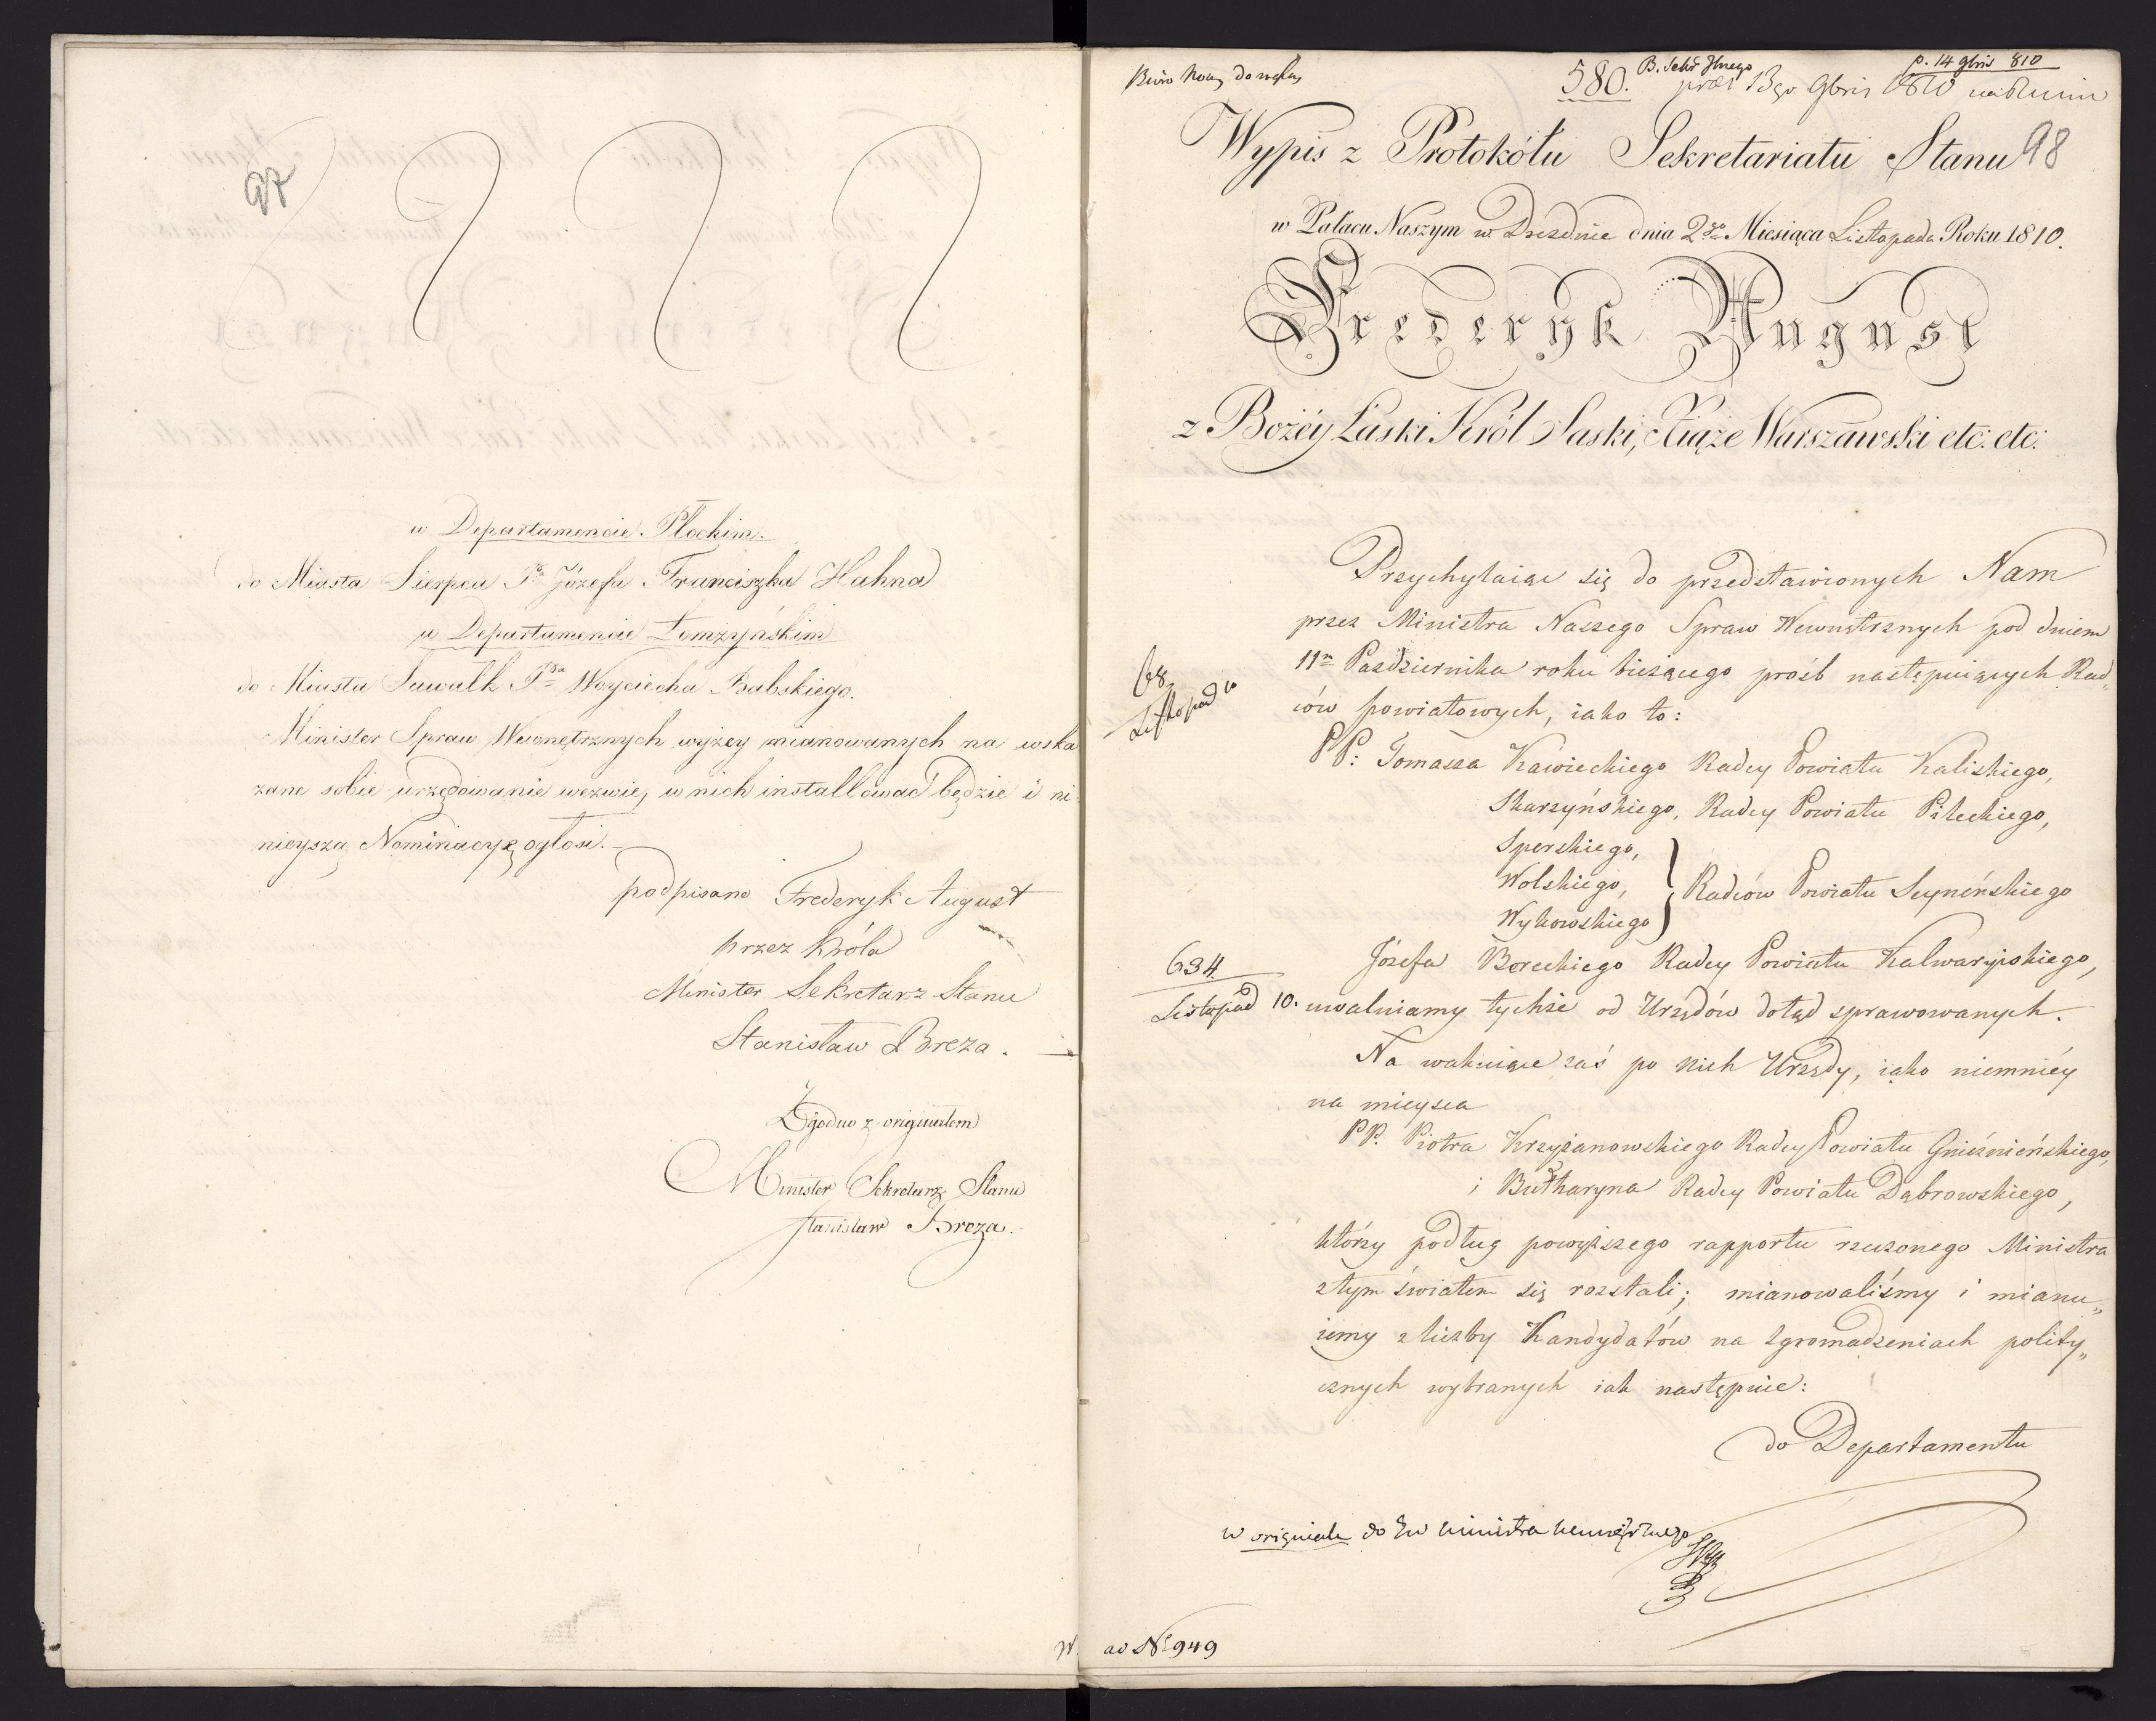 97
w Departamencie Płockim.
do Miasta Sierpca Pa Józefa Franciszka Hahna
w Departamencie Łomżyńskim
do Miasta Suwalk Pna Woyciecha Babskiego.
Minister Spraw Wewnętrznych wyżey mianowanych na wska
zane sobie urzędowanie wezwie, w nich installować będzie i ni-
nieyszą Nominacyę ogłosi.
podpisano Frederyk August
przez Króla
Minister Sekretarz Stanu
Stanisław Breza.
Zgodno z originałem
Minister Sekretarz Stanu
Stanisław Breza.
580. B. Sekr p. 14 9bris 810
13go 9bris 1810
Wypis z Protokółu Sekretariatu Stanu 98
w Pałacu Naszym w Dreźdnie dnia 2go Miesiąca Listopada Roku 1810.
Frederyk August
z Bożéy Łaski Król Saski, Xiąże Warszawski etc: etc:
Przychylaiąc się do przedstawionych Nam
przez Ministra Naszego Spraw Wewnętrznych pod dniem
11m Października roku bieżącego próśb następuiących Rad„
ców powiatowych, iako to:
68
Listopad
PP: Tomasza Kawieckiego Radcy Powiatu Kaliskiego,
Skarzyńskiego, Radcy Powiatu Pileckiego,
Sperskiego,
Wolskiego, } Radców Powiatu Seyneńskiego
Wykowskiego
Józefa Boreckiego Radcy Powiatu Kalwaryiskiego,
634
Listopad 10.
uwalniamy tychże od Urzędów dotąd sprawowanych.
Na wakuiące zaś po nich Urzędy, iako niemniéy
na mieysca
PP. Piotra Krzyżanowskiego Radcy Powiatu Gnieźnieńskiego,
i Bułharyna Radcy Powiatu Dąbrowskiego,
którzy podług powyższego rapportu rzeczonego Ministra
z tym światem się rozstali; mianowaliśmy i mianu„
iemy z liczby Kandydatów na Zgromadzeniach polity„
cznych wybranych iak następuie:
do Departamentu
w originale do Ministra
ad No 949